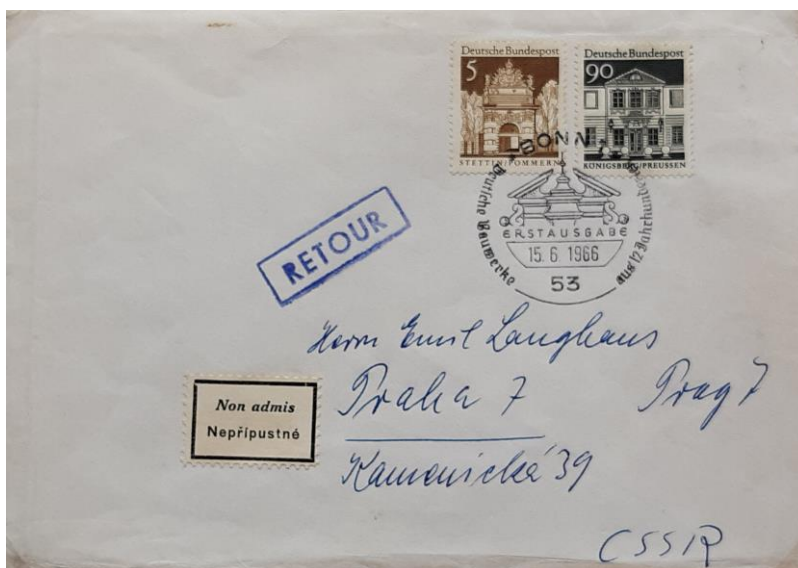 Deutsche Bundespost
5
STETTIN/POMMERN
Deutsche Bundespost
90
KÖNIGSBERG/PREUSSEN
BONN
Deutsche Bauwerke
aus 12 Jahrhunderten
ERSTAUSGABE
15. 6. 1966
53
RETOUR
Herrn Emil Langhans
Praha 7 Prag 7
Kamenická 39
CSSR
Non admis
Nepřípustné